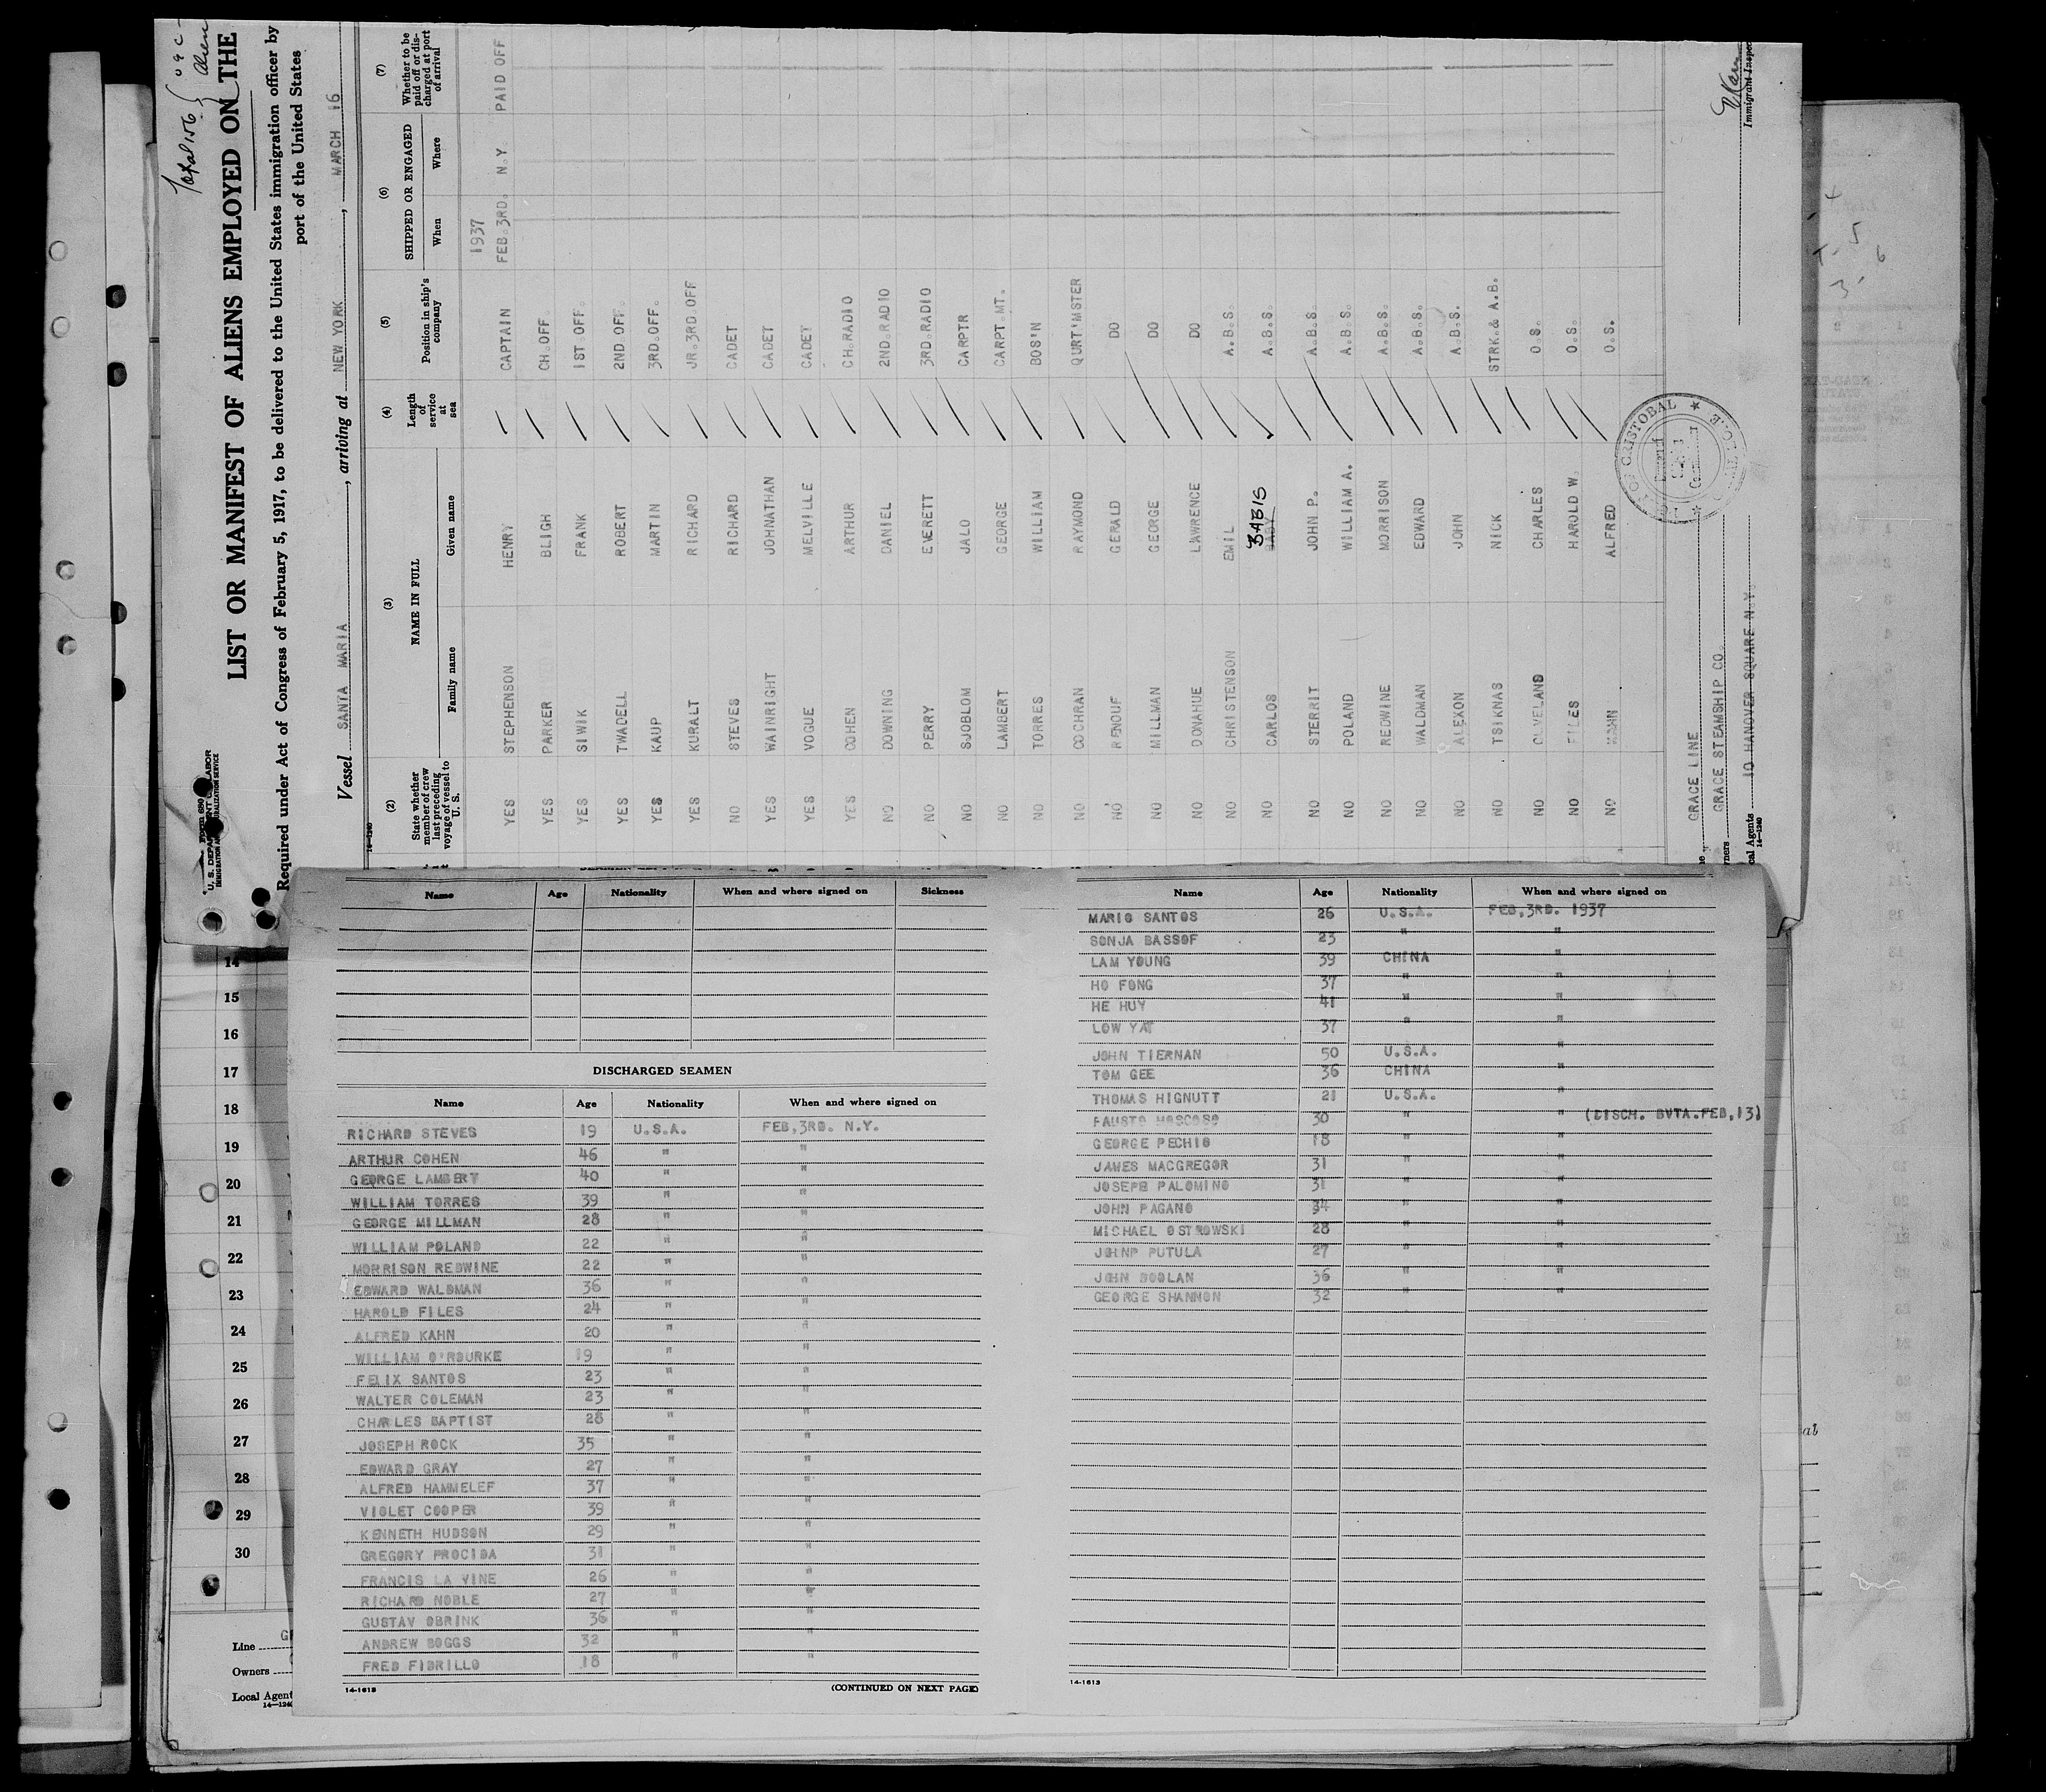 Total 156
LIST OR MANIFEST OF ALIENS EMPLOYED ON THE
Required under Act of Congress of February 5, 1917, to be delivered to the United States immigration officer by
port of the United States
Vessel SANTA MARIA, arriving at NEW YORK, MARCH 16
(2) (3) (4) (5) (6) (7)
State whether member of crew last preceding voyage of vessel to U. S. NAME IN FULL Length of service at sea Position in ship's company SHIPPED OR ENGAGED Whether to be paid off or discharged at port of arrival
Family name Given name When Where
1937
YES STEPHENSON HENRY CAPTAIN FEB.3RD. N.Y. PAID OFF
YES PARKER BLIGH CH.OFF.
YES SIWIK FRANK 1ST.OFF.
YES TWADELL ROBERT 2ND.OFF.
YES KAUP MARTIN 3RD.OFF.
YES KURALT RICHARD JR.3RD.OFF
NO STEVES RICHARD CADET
YES WAINRIGHT JOHNATHAN CADET
YES VOGUE MELVILLE CADET
YES COHEN ARTHUR CH.RADIO
NO DOWNING DANIEL 2ND.RADIO
NO PERRY EVERETT 3RD.RADIO
NO SJOBLOM JALO CARPTR
NO LAMBERT GEORGE CARPT.MT.
NO TORRES WILLIAM BOS'N
NO COCHRAN RAYMOND QURT'MSTER
NO RENOUF GERALD DO
NO MILLMAN GEORGE DO
NO DONAHUE LAWRENCE DO
NO CHRISTENSON EMIL A.B.S.
NO CARLOS BABIS A.B.S.
NO STERRIT JOHN P. A.B.S.
NO POLAND WILLIAM A. A.B.S.
NO REDWINE MORRISON A.B.S.
NO WALDMAN EDWARD A.B.S.
NO ALEXON JOHN A.B.S.
NO TSIKNAS NICK STRK.& A.B.
NO CLEVELAND CHARLES O.S.
NO FILES HAROLD W. O.S.
NO ALFRED O.S.
GRACE LINE
GRACE STEAMSHIP CO.
Local Agents 10 HANOVER SQUARE N.Y.
14-1240
Immigrant Inspec
CRISTOBAL
Name Age Nationality When and where signed on Sickness
DISCHARGED SEAMEN
Name Age Nationality When and where signed on
RICHARD STEVES 19 U.S.A. FEB,3RD. N.Y.
ARTHUR COHEN 46 " "
GEORGE LAMBERT 40 " "
WILLIAM TORRES 39 " "
GEORGE MILLMAN 28 " "
WILLIAM POLAND 22 " "
MORRISON REDWINE 22 " "
EDWARD WALDMAN 36 " "
HAROLD FILES 24 " "
ALFRED KAHN 20 " "
WILLIAM O'ROURKE 19 " "
FELIX SANTOS 23 " "
WALTER COLEMAN 23 " "
CHARLES BAPTIST 28 " "
JOSEPH ROCK 35 " "
EDWARD GRAY 27 " "
ALFRED HAMMELEF 37 " "
VIOLET COOPER 39 " "
KENNETH HUDSON 29 " "
GREGORY PROCIDA 31 " "
FRANCIS LA VINE 26 " "
RICHARD NOBLE 27 " "
GUSTAV OBRINK 36 " "
ANDREW BOGGS 32 " "
FRED FIDRILLO 18 " "
14-1613 (CONTINUED ON NEXT PAGE)
Name Age Nationality When and where signed on
MARIO SANTOS 26 U.S.A. FEB,3RD. 1937
SONJA BASSOF 23 " "
LAM YOUNG 39 CHINA "
HO FONG 37 " "
HE HUY 41 " "
LOW YAT 37 " "
JOHN TIERNAN 50 U.S.A. "
TOM GEE 36 CHINA "
THOMAS HIGNUTT 21 U.S.A. "
FAUSTO MOSCOSO 30 " " (DISCH. BVTA.FEB,13)
GEORGE PECHIO 18 " "
JAMES MACGREGOR 31 " "
JOSEPH PALOMINO 31 " "
JOHN PAGANO 34 " "
MICHAEL OSTROWSKI 28 " "
JOHNP PUTULA 27 " "
JOHN DOOLAN 36 " "
GEORGE SHANNON 32 " "
14-1613
14
15
16
17
18
19
20
21
22
23
24
25
26
27
28
29
30
Line
Owners
Local Agent
14-1240